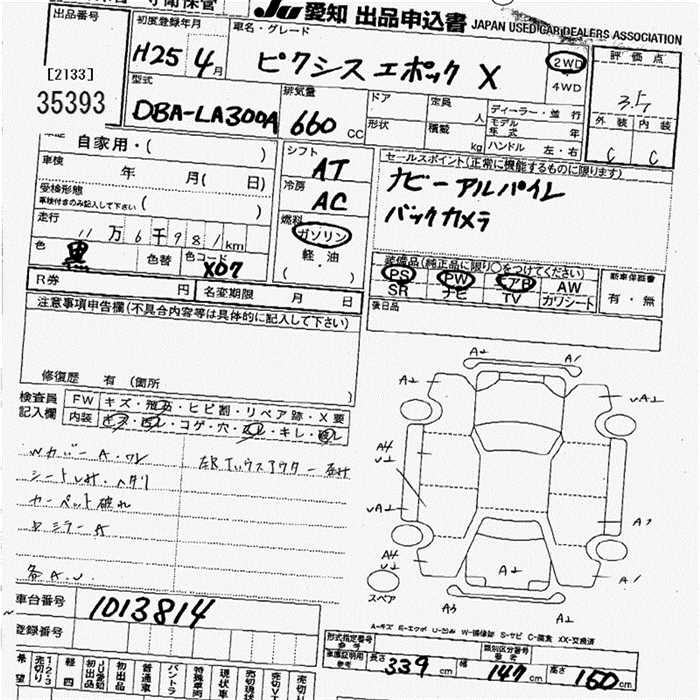 JU 愛知 出品申込書 JAPAN USED CAR DEALERS ASSOCIATION
出品番号
[2133]
35393
初度登録年月
H25年 4月
車名・グレード
ピクシス エポック X
2WD
4WD
評価点
3.5
外装 内装
C C
型式
DBA-LA300A
排気量
660 cc
ドア
形状
定員 人
積載 kg
ディーラー・並行
モデル年式 年
ハンドル 左・右
自家用・( )
車検 年 月( 日)
受検形態
車検付きのみ記入して下さい ( )
走行
11万6千981km
色 黒 色替 色コード X07
シフト
AT
冷房
AC
燃料
ガソリン
軽・油
( )
セールスポイント(正常に機能するものに限ります)
ナビー アルパイン
バックカメラ
装備品(純正品に限り○をつけてください)
PS PW エアB AW
SR ナビ TV カワシート
新車保証書
有・無
後日品
R券 円 名変期限 月 日
注意事項申告欄(不具合内容等は具体的に記入して下さい)
修復歴 有 (箇所 )
検査員
記入欄
FW キズ・飛石・ヒビ割・リペア跡・X要
内装 コゲ・穴・ ・キレ・
Wカバー A・ワレ
カーペット破れ
ミラー A
各A.U.
A2 A1
A2 vA2
A4
U2
vA2 A1
A4
U2 A2 A1
スペア
A3 A2
A-キズ E-エクボ U-凹み W-補修跡 S-サビ C-腐食 XX-交換済
車台番号
1013814
登録番号
形式指定番号
参考
類別区分番号
参考
車庫証明用
参考
長さ 339 cm 幅 147 cm 高さ 160 cm
希望
売切り
1・2・3
軽四
JU愛知
初出品
初出品
普通車
バントラ
特殊車両
現状車
売切VT